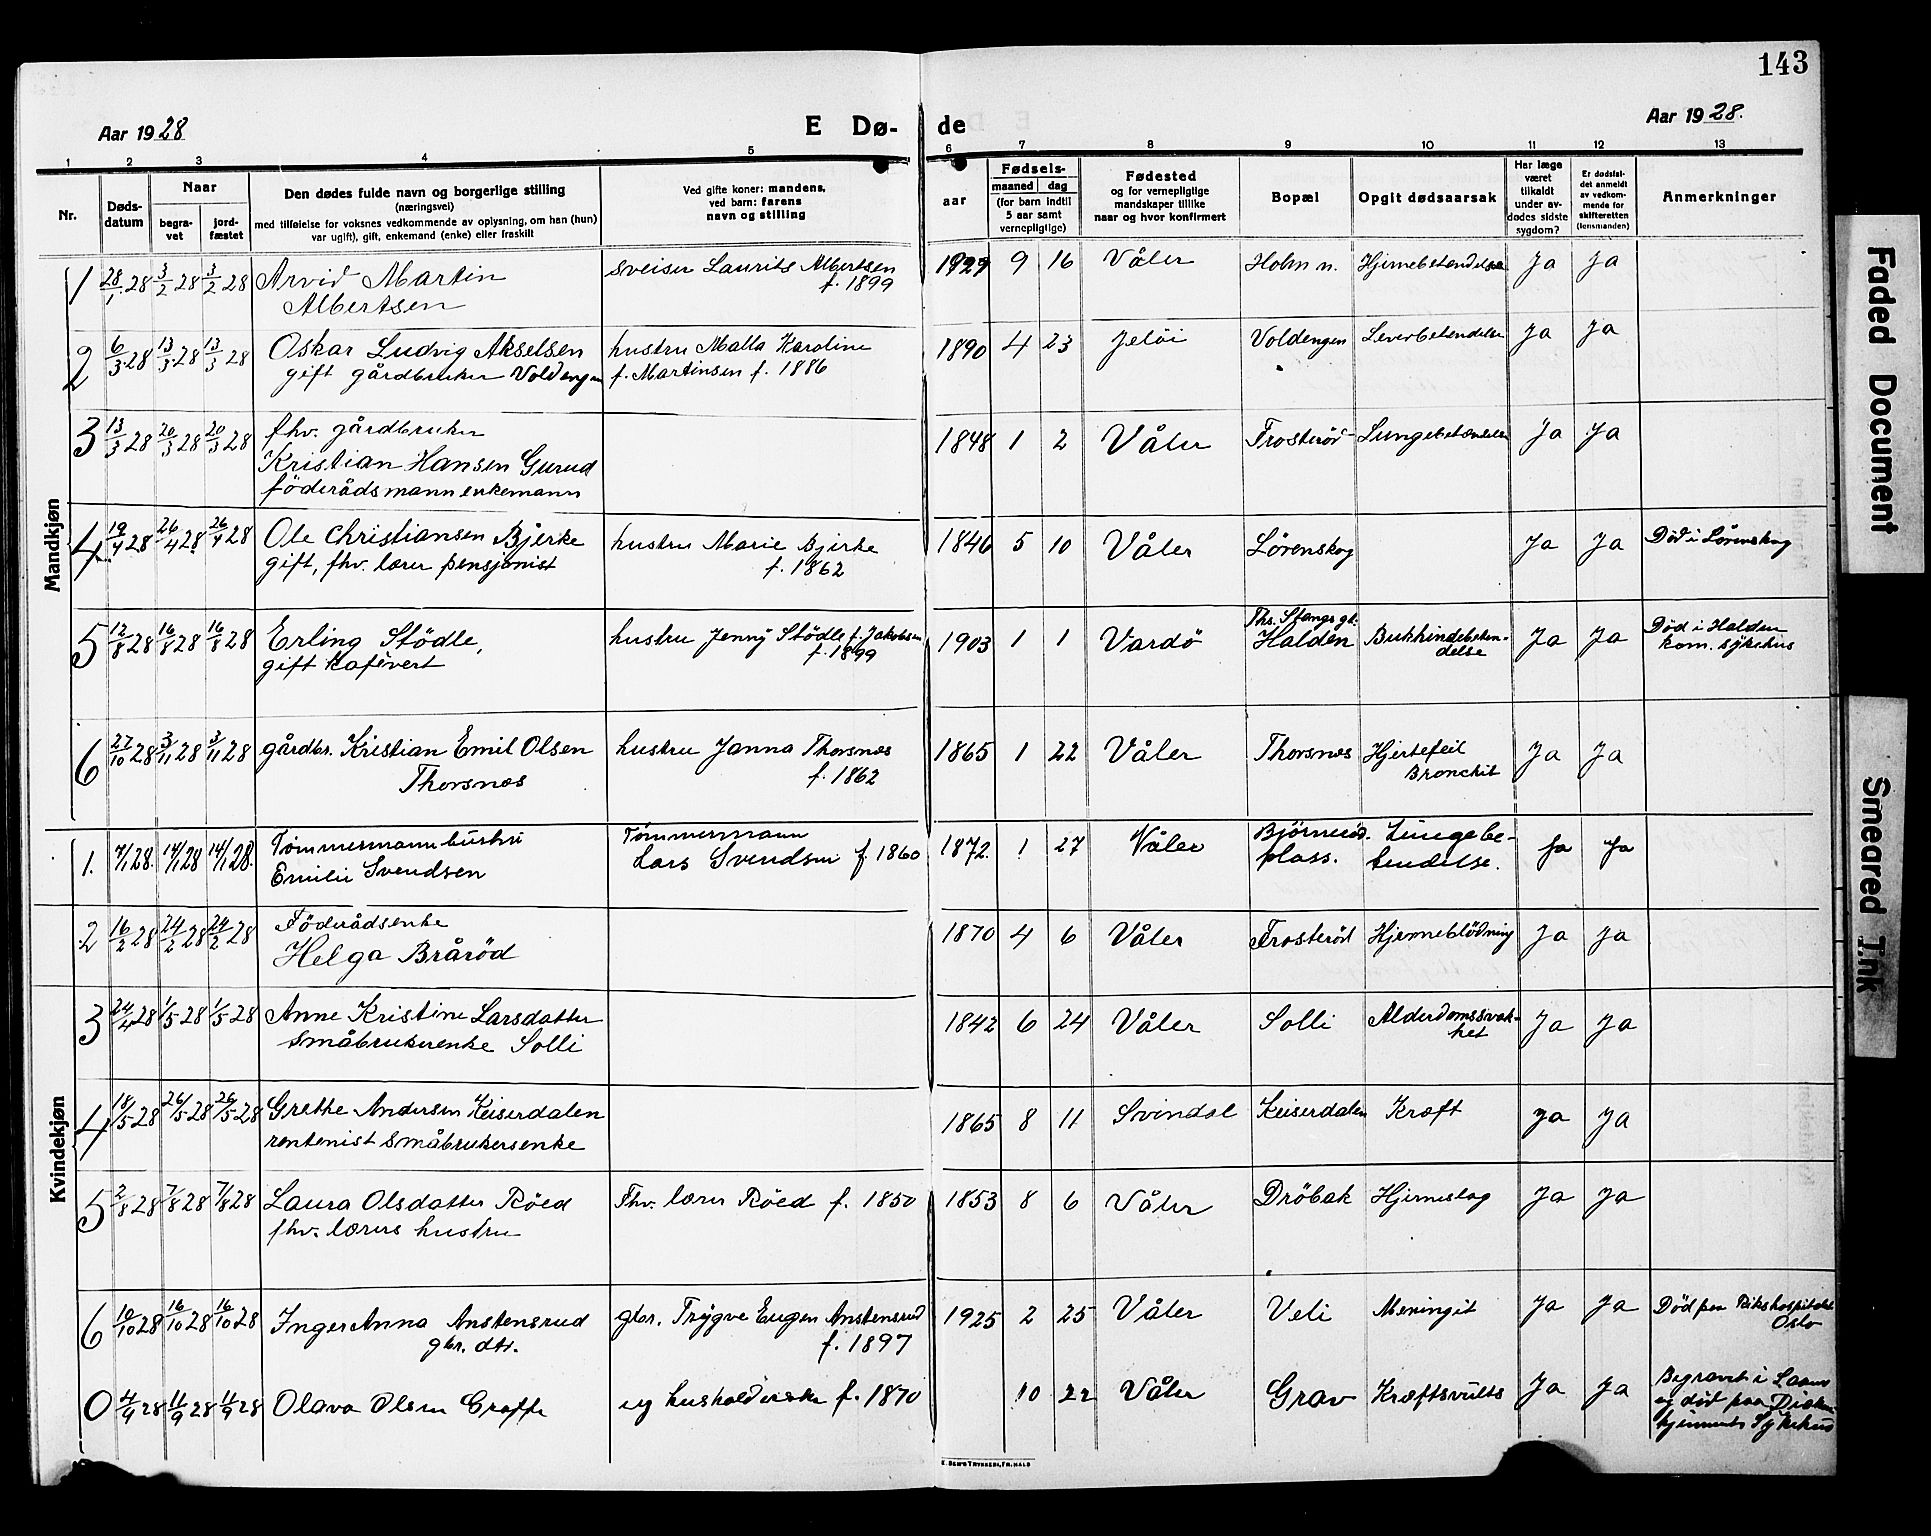 143
Aar 1928
E Dø-
de
Aar 1928.
1 2 3 4 5 6 7 8 9 10 11 12 13
Nr.
Døds-
datum
Naar
begra-
vet
jord-
fæstet
Den dødes fulde navn og borgerlige stilling
(næringsvei)
med tilføielse for voksnes vedkommende av oplysning, om han (hun)
var ugift), gift, enkemand (enke) eller fraskilt
Ved gifte koner: mandens,
ved barn: farens
navn og stilling
aar
Fødsels-
maaned dag
(for barn indtil
5 aar samt
vernepligtige)
Fødested
og for vernepligtige
mandskaper tillike
naar og hvor konfirmert
Bopæl
Opgit dødsaarsak
Har læge
været
tilkaldt
under av-
dødes sidste
sygdom?
Er dødsfal-
det anmeldt
av vedkom-
mende for
skifteretten
(lensmanden)
Anmerkninger
Mandkjøn
1 28/1 28 3/2 28 3/2 28 Arvid Martin
Albertsen
sveiser Laurits Albertsen
f. 1899
1927 9 16 Våler Holm n. Hjernebetændelse Ja Ja
2 6/3 28 13/3 28 13/3 28 Oskar Ludvig Akselsen
gift gårdbruker Voldengen
hustru Malla Karoline
f. Martinsen f. 1886
1890 4 23 Jeløi Voldengen Leverbetændelse Ja Ja
3 13/3 28 20/3 28 20/3 28 fhv. gårdbruker
Kristian Hansen Gurud
föderådsmann enkemann
1848 1 2 Våler Frosterød Lungebetændelse Ja Ja
4 19/4 28 26/4 28 26/4 28 Ole Christiansen Bjerke
gift, fhv. lærer pensjonist
hustru Marie Bjerke
f. 1862
1846 5 10 Våler Lörenskog Ja Ja Död i Lörenskog
5 12/8 28 16/8 28 16/8 28 Erling Stödle,
gift kafévert
hustru Jenny Stödle f. Jakobsen
f. 1899
1903 1 1 Vardö Ths. Stangs gt.
Halden Bukhindebeten-
delse Ja Ja Död i Halden
kom. sykehus
6 27/10 28 3/11 28 3/11 28 gårdbr. Kristian Emil Olsen
Thorsnæs
hustru Janna Thorsnæs
f. 1862
1865 1 22 Våler Thorsnæs Hjertefeil
Bronchit Ja Ja
Kvindekjøn
1. 7/1 28. 14/1 28 14/1 28. Tömmermann hustru
Emilie Svendsen
Tömmermann
Lars Svendsen f. 1860
1872. 1 27 Våler Björnerød.
plass. Lungebe-
tendelse. Ja Ja
2 16/2 28 24/2 28 24/2 28 Föderådsenke
Helga Brårød
1870 4 6 Våler Frosterød Hjerneblödning Ja Ja
3 24/4 28 1/5 28 1/5 28 Anne Kristine Larsdatter
småbrukerenke Solli
1842 6 24 Våler Solli Alderdomssvak-
het Ja Ja
4 18/5 28 26/5 28 26/5 28 Grethe Andersen Keiserdalen
rentenist småbrukersenke
1865 8 11 Svindal Keiserdalen Kræft Ja Ja
5 2/8 28 7/8 28 7/8 28 Laura Olsdatter Röed
fhv. lærers hustru
Fhv. lærer Röed f. 1850
1853 8 6 Våler Dröbak Hjerneslag Ja Ja
6 10/10 28 16/10 28 16/10 28 Inger Anna Anstensrud
gbr. dtr.
gbr. Trygve Eugen Anstensrud
f. 1897
1925 2 25 Våler Veli Meningit Ja Ja Död paa Rikshospitalet
Oslo
0 4/9 28 11/9 28 11/9 28 Olava Olsen Graffe
ug husholderske f. 1870
10 22 Våler Grav Kræftsvulst Ja Ja Begravet i
og död paa Diakon-
hjemmets Sykehus
E. SEM'S TRYKKERI, FR.HALD
Faded Document
Smeared Ink